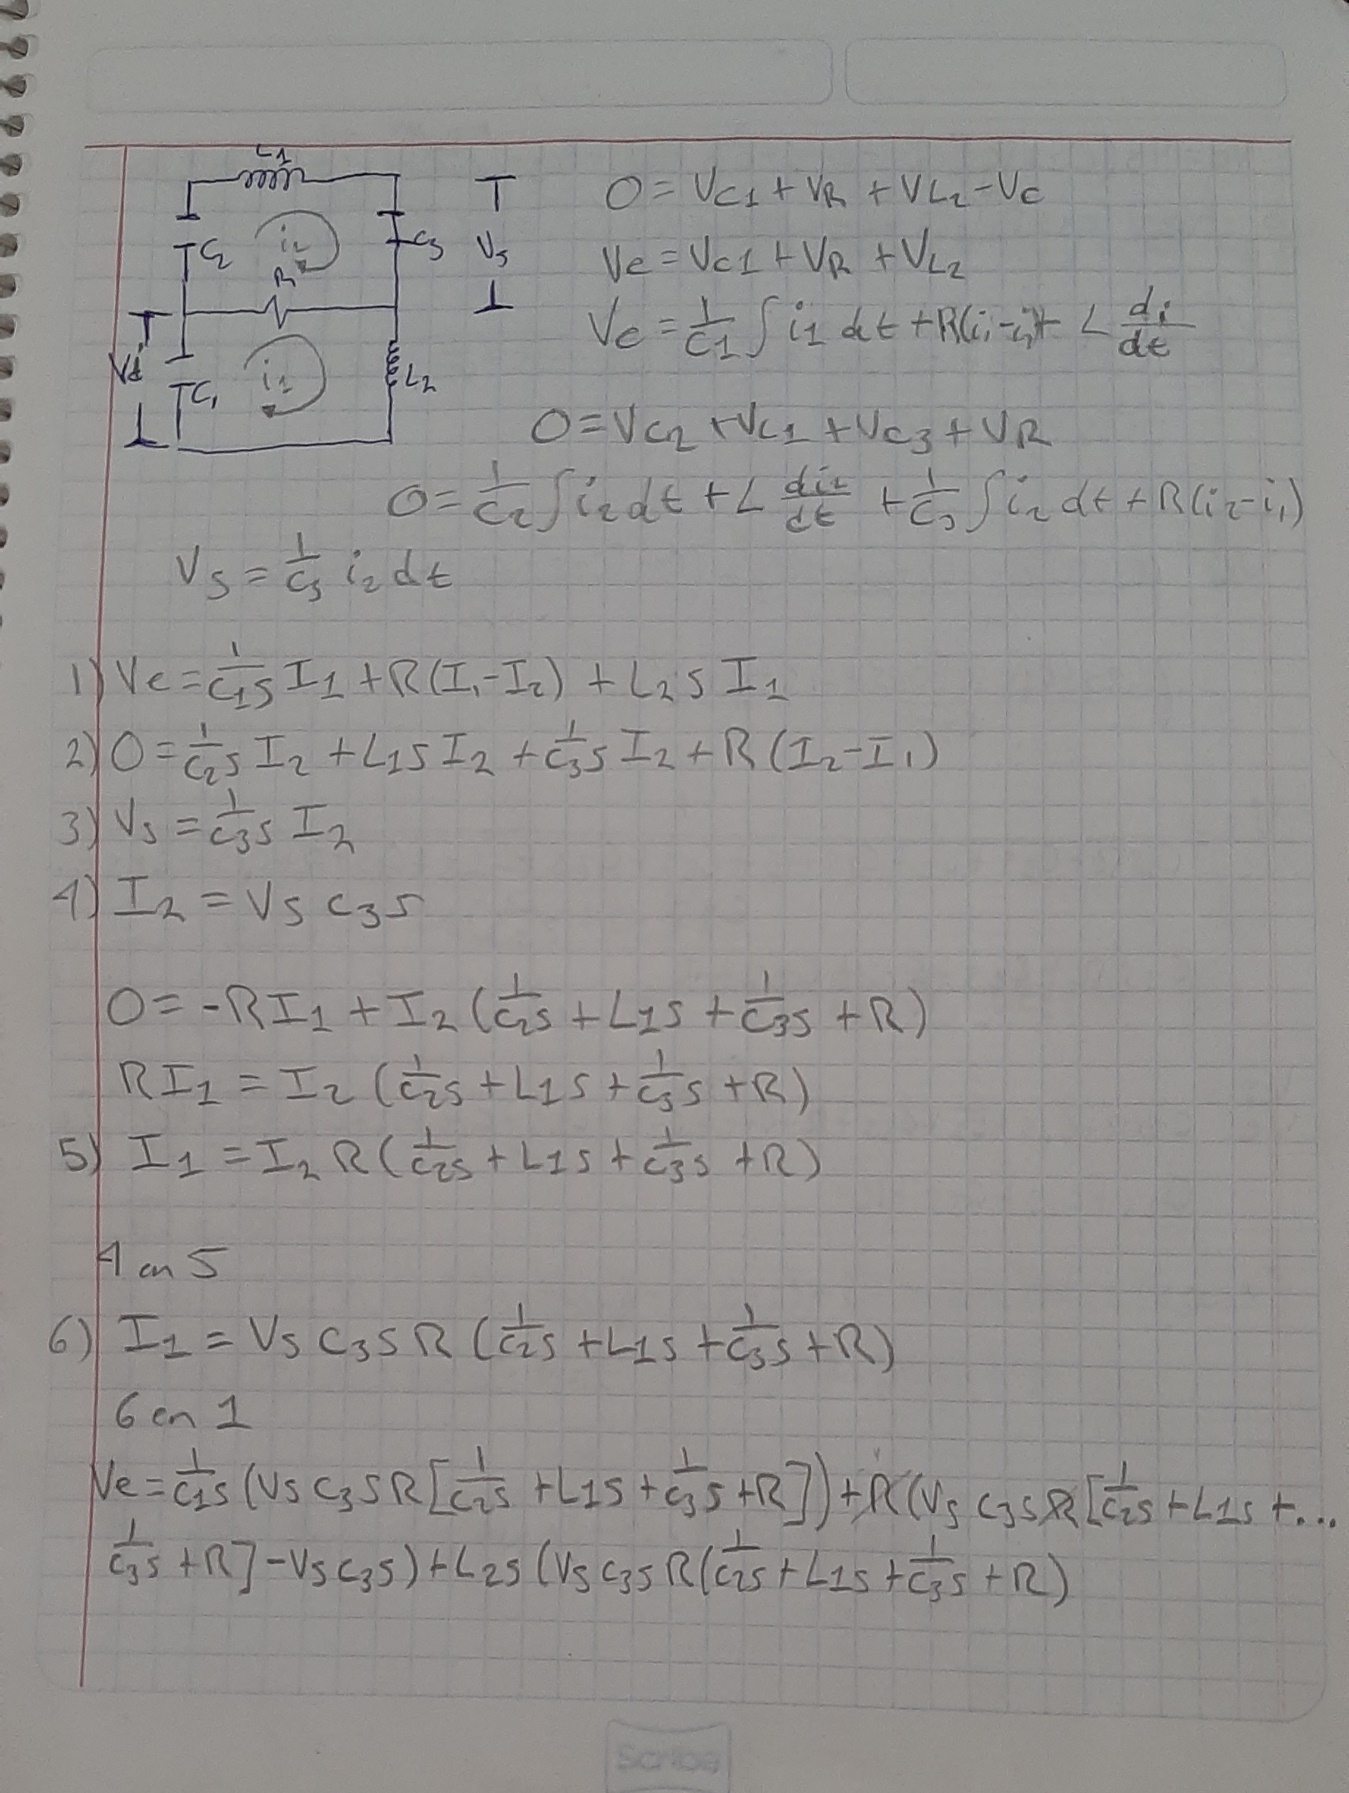 L1
C2
i2
C3
Vs
R
Ve
C1
i1
L2
0 = VC1 + VR + VL2 - Ve
Ve = VC1 + VR + VL2
Ve = 1/C1 ∫ i1 dt + R(i1-i2) + L di/dt
0 = VC2 + VL1 + VC3 + VR
0 = 1/C2 ∫ i2 dt + L di2/dt + 1/C3 ∫ i2 dt + R(i2-i1)
Vs = 1/C3 i2 dt
1) Ve = 1/C1s I1 + R(I1-I2) + L2s I1
2) 0 = 1/C2s I2 + L1s I2 + 1/C3s I2 + R(I2-I1)
3) Vs = 1/C3s I2
4) I2 = Vs C3s
0 = -RI1 + I2 (1/C2s + L1s + 1/C3s + R)
RI1 = I2 (1/C2s + L1s + 1/C3s + R)
5) I1 = I2 R (1/C2s + L1s + 1/C3s + R)
4 en 5
6) I1 = Vs C3s R (1/C2s + L1s + 1/C3s + R)
6 en 1
Ve = 1/C1s (Vs C3s R [1/C2s + L1s + 1/C3s + R]) + R (Vs C3s R [1/C2s + L1s + ...
1/C3s + R] - Vs C3s) + L2s (Vs C3s R (1/C2s + L1s + 1/C3s + R)
Scribe